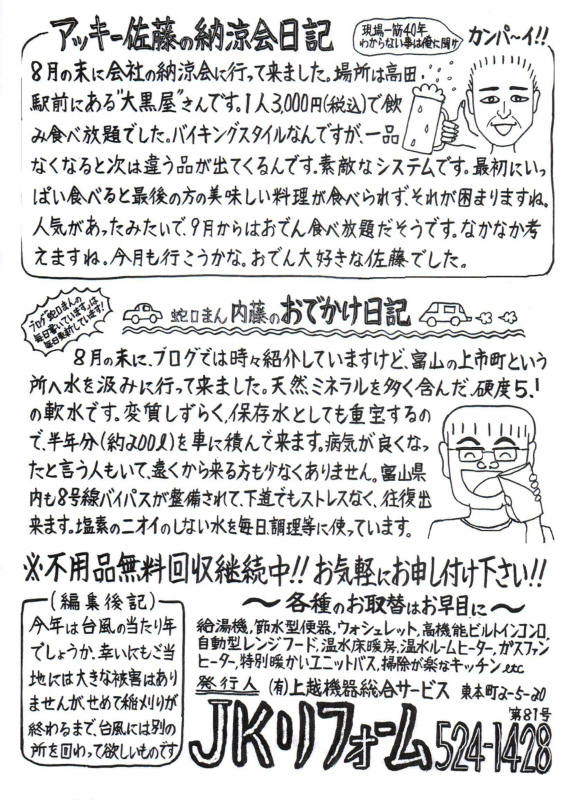 アッキー佐藤の納涼会日記
現場一筋40年
わからない事は俺に聞け
カンパ〜イ!!
8月の末に会社の納涼会に行って来ました。場所は高田
駅前にある"大黒屋"さんです。1人3,000円(税込)で飲
み食べ放題でした。バイキングスタイルなんですが、一品
なくなると次は違う品が出てくるんです。素敵なシステムです。最初にいっ
ぱい食べると最後の方の美味しい料理が食べられず、それが困りますね。
人気があったみたいで、9月からはおでん食べ放題だそうです。なかなか考
えますね。今月も行こうかな。おでん大好きな佐藤でした。
ブログ"蛇口まんの
毎日書いています"は
毎日更新しています!
蛇口まん内藤のおでかけ日記
8月の末に、ブログでは時々紹介していますけど、富山の上市町という
所へ水を汲みに行って来ました。天然ミネラルを多く含んだ、硬度5.1
の軟水です。変質しずらく、保存水としても重宝するの
で、半年分(約200ℓ)を車に積んで来ます。病気が良くなっ
たと言う人もいて、遠くから来る方も少なくありません。富山県
内も8号線バイパスが整備されて、下道でもストレスなく、往復出
来ます。塩素のニオイのしない水を毎日、調理等に使っています。
※不用品無料回収継続中!! お気軽にお申し付け下さい!!
(編集後記)
今年は台風の当たり年
でしょうか。幸いにもご当
地には大きな被害はあり
ませんが、せめて稲刈りが
終わるまで、台風には別の
所を回わって欲しいものです
〜各種のお取替はお早目に〜
給湯機,節水型便器,ウォシュレット,高機能ビルトインコンロ,
自動型レンジフード,温水床暖房,温水ルームヒーター,ガスファン
ヒーター,特別暖かいユニットバス,掃除が楽なキッチン etc
発行人 (有)上越機器総合サービス 東本町2-5-20
第81号
JKリフォーム 524-1428